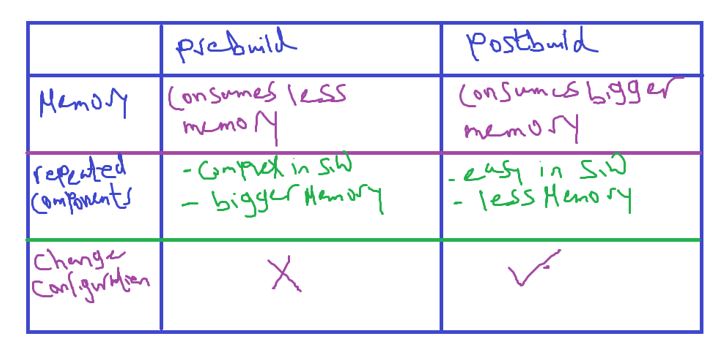 prebuild
Postbuild
Memory
Consumes less
memory
Consumes bigger
memory
repeated
Components
- Complex in S.W
- bigger Memory
- easy in S.W
- less Memory
Change
Configuration
X
✓